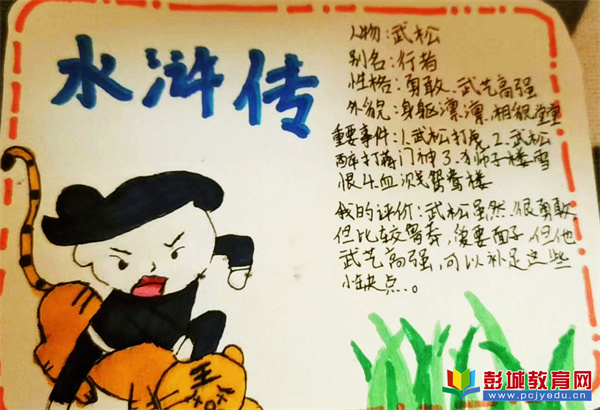 水浒传
人物:武松
别名:行者
性格:勇敢、武艺高强
外貌:身躯凛凛,相貌堂堂
重要事件:1.武松打虎 2.武松
醉打蒋门神 3.狮子楼雪
恨 4.血溅鸳鸯楼
我的评价:武松虽然很勇敢,
但比较鲁莽,爱要面子,但他
武艺高强,可以补足这些
小缺点。
王
彭城教育网
www.pcjyedu.cn